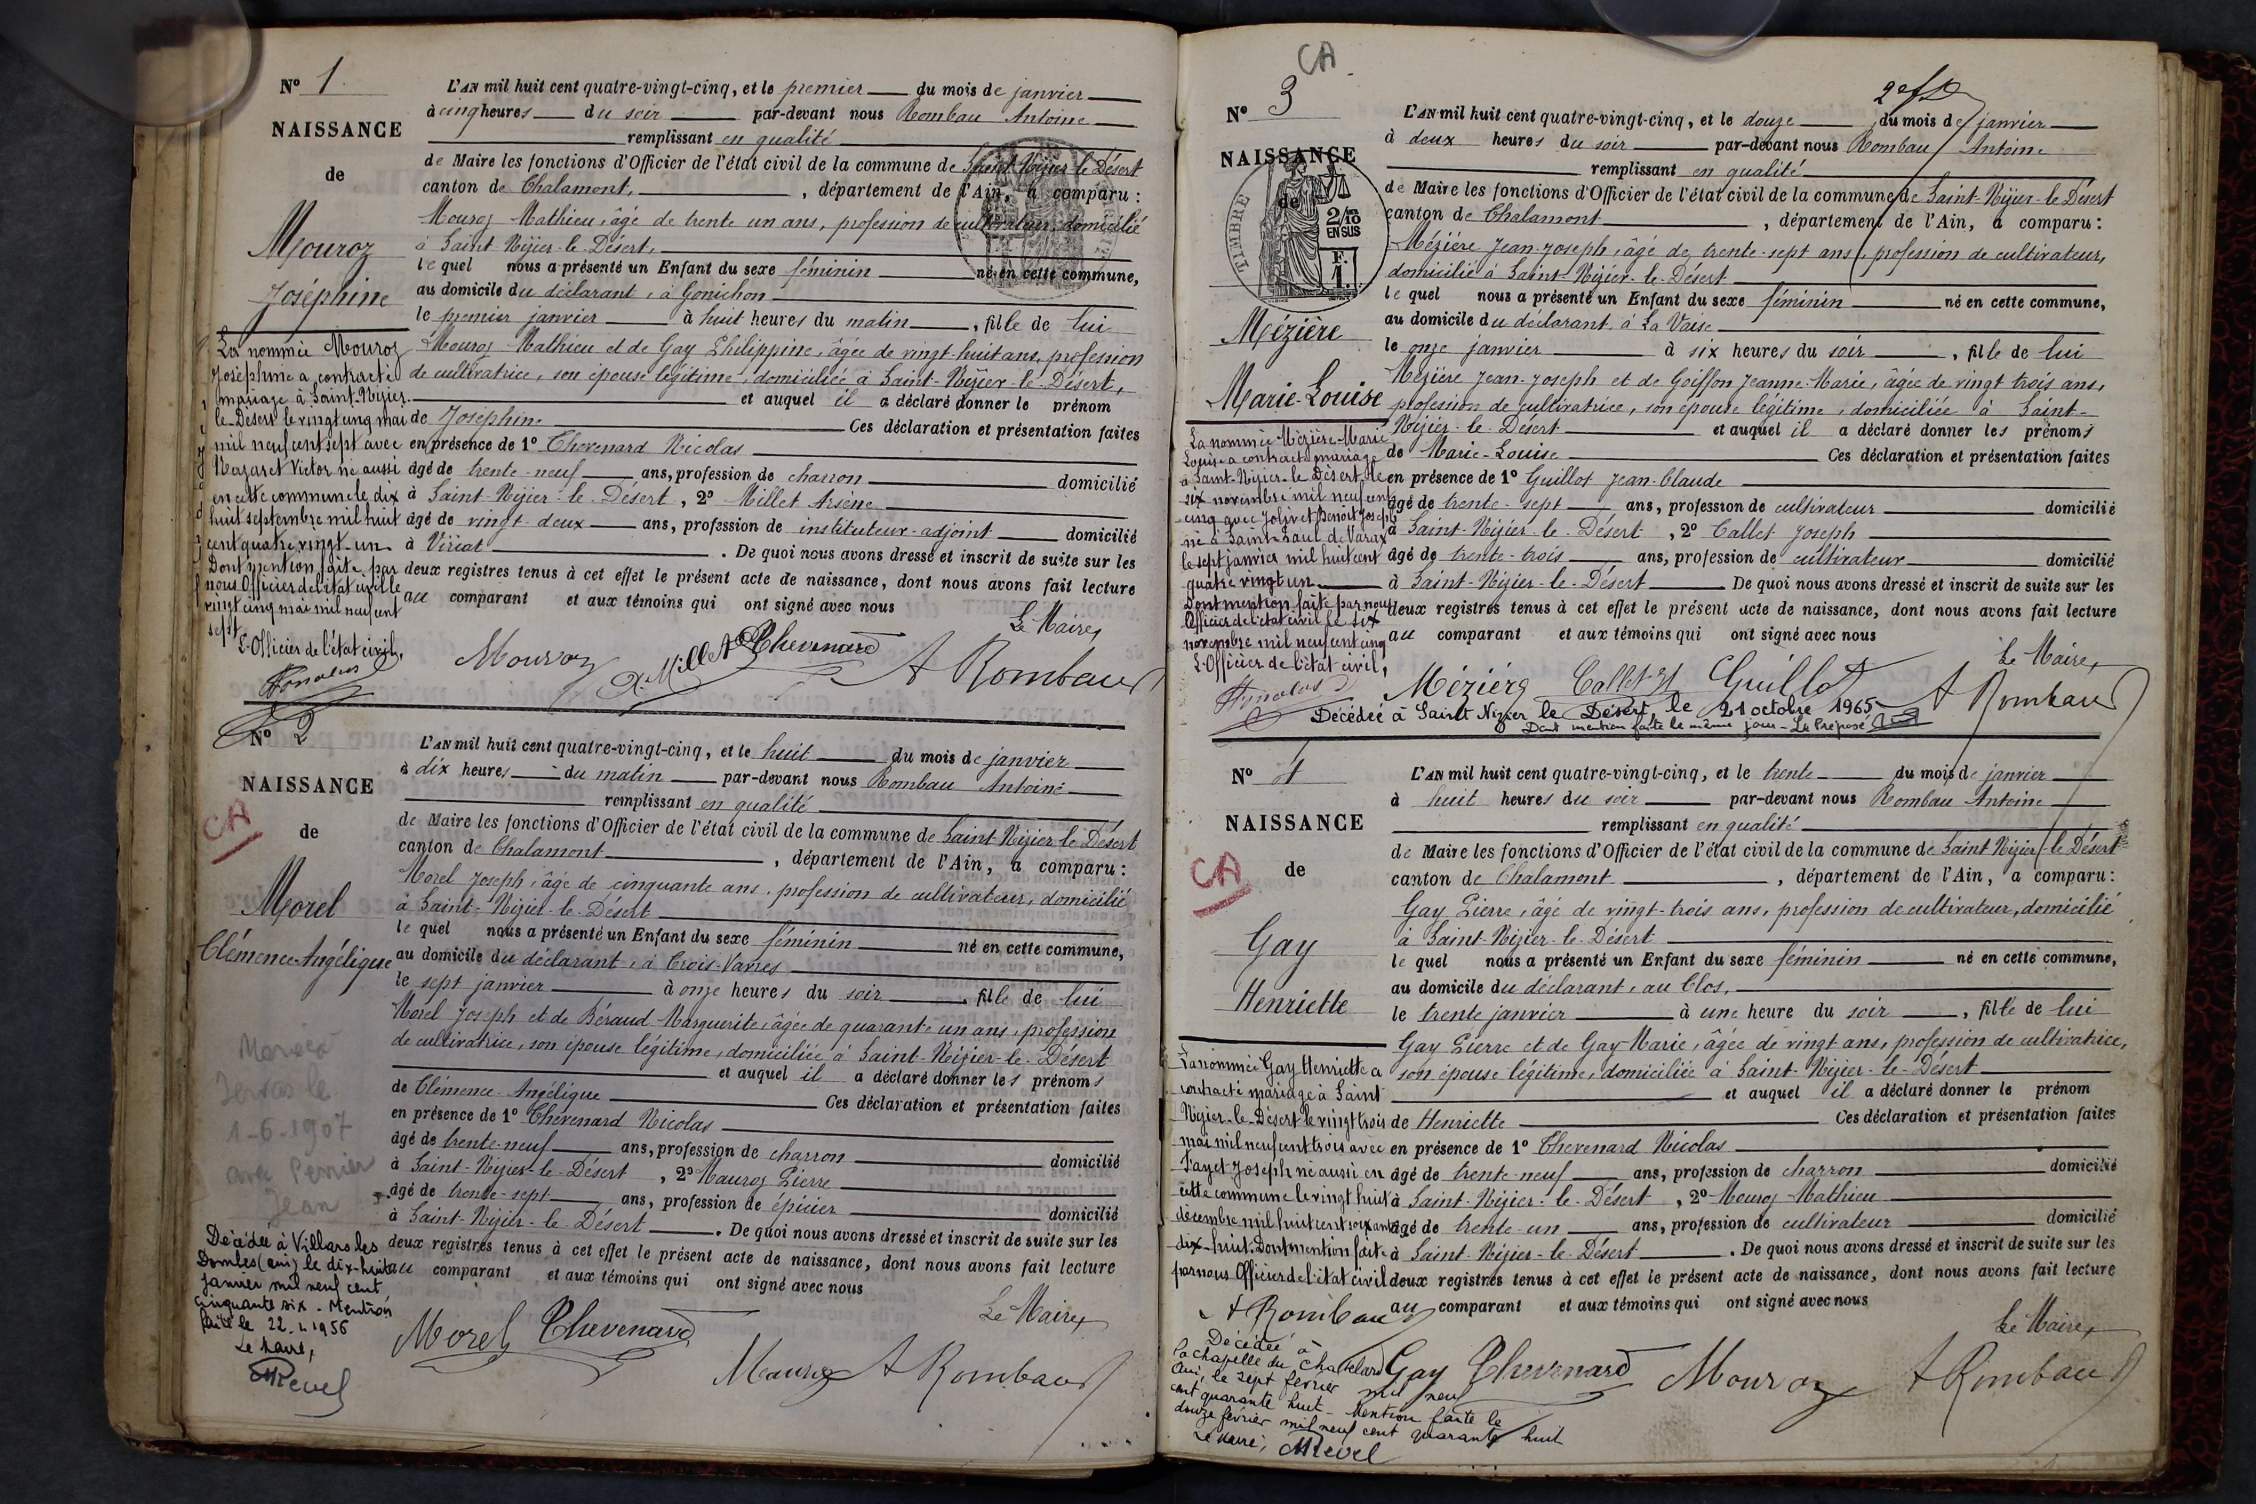 Nº 1
NAISSANCE
de
Mouroz
Joséphine
L'AN mil huit cent quatre-vingt-cinq, et le premier du mois de janvier
à cinq heures du soir par-devant nous Rombau Antoine
remplissant en qualité
de Maire les fonctions d'Officier de l'état civil de la commune de Saint-Nizier-le-Désert
canton de Chalamont, , département de l'Ain, a comparu :
Mouroz Mathieu, âgé de trente un ans, profession de cultivateur, domicilié
à Saint Nizier-le-Désert,
lequel nous a présenté un Enfant du sexe féminin né en cette commune,
au domicile du déclarant, à Gonichon
le premier janvier à huit heures du matin , fille de lui
Mouroz Mathieu et de Gay Philippine, âgée de vingt-huit ans, profession
de cultivatrice, son épouse légitime, domiciliée à Saint-Nizier-le-Désert,
et auquel il a déclaré donner le prénom
de Joséphine Ces déclaration et présentation faites
en présence de 1º Chevenard Nicolas
âgé de trente-neuf ans, profession de charron domicilié
à Saint-Nizier-le-Désert, 2º Millet Arsène
âgé de vingt-deux ans, profession de instituteur-adjoint domicilié
à Viriat . De quoi nous avons dressé et inscrit de suite sur les
deux registres tenus à cet effet le présent acte de naissance, dont nous avons fait lecture
au comparant et aux témoins qui ont signé avec nous
Le Maire,
Mouroz A. Millet Chevenard A Rombau
La nommée Mouroz
Joséphine a contracté
mariage à Saint-Nizier-
le-Désert le vingt cinq mai
mil neuf cent sept avec
Nazaret Victor né aussi
en cette commune le dix
huit septembre mil huit
cent quatre vingt-un.
Dont mention faite par
nous Officier de l'état civil le
vingt cinq mai mil neuf cent
sept.
L'Officier de l'état civil,
Nº 2
NAISSANCE
CA
de
Morel
Clémence-Angélique
L'AN mil huit cent quatre-vingt-cinq, et le huit du mois de janvier
à dix heures du matin par-devant nous Rombau Antoine
remplissant en qualité
de Maire les fonctions d'Officier de l'état civil de la commune de Saint-Nizier-le-Désert
canton de Chalamont , département de l'Ain, a comparu :
Morel Joseph, âgé de cinquante ans, profession de cultivateur, domicilié
à Saint-Nizier-le-Désert
lequel nous a présenté un Enfant du sexe féminin né en cette commune,
au domicile du déclarant, à Trois-Vavres
le sept janvier à onze heures du soir , fille de lui
Morel Joseph et de Béraud Marguerite, âgée de quarante un ans, profession
de cultivatrice, son épouse légitime, domiciliée à Saint-Nizier-le-Désert
et auquel il a déclaré donner les prénoms
de Clémence-Angélique Ces déclaration et présentation faites
en présence de 1º Chevenard Nicolas
âgé de trente-neuf ans, profession de charron domicilié
à Saint-Nizier-le-Désert , 2º Mauroz Pierre
âgé de trente-sept ans, profession de épicier domicilié
à Saint-Nizier-le-Désert . De quoi nous avons dressé et inscrit de suite sur les
deux registres tenus à cet effet le présent acte de naissance, dont nous avons fait lecture
au comparant et aux témoins qui ont signé avec nous
Le Maire,
Morel Chevenard Mauroz A Rombau
1-6-1907
avec Perrier
Jean
Décédée à Villars les
Dombes (ain) le dix-huit
janvier mil neuf cent
cinquante six. Mention
faite le 22.1.1956
Le Maire,
Mrevel
CA
Nº 3
NAISSANCE
de
TIMBRE
2/10
EN SUS
F.
1.
Mézière
Marie-Louise
L'AN mil huit cent quatre-vingt-cinq, et le douze du mois de janvier
à deux heures du soir par-devant nous Rombau Antoine
remplissant en qualité
de Maire les fonctions d'Officier de l'état civil de la commune de Saint-Nizier-le-Désert
canton de Chalamont , département de l'Ain, a comparu :
Mézière Jean-Joseph, âgé de trente-sept ans, profession de cultivateur,
domicilié à Saint-Nizier-le-Désert
lequel nous a présenté un Enfant du sexe féminin né en cette commune,
au domicile du déclarant, à La Vaise
le onze janvier à six heures du soir , fille de lui
Mézière Jean-Joseph et de Goiffon Jeanne-Marie, âgée de vingt trois ans,
profession de cultivatrice, son épouse légitime, domiciliée à Saint-
Nizier-le-Désert et auquel il a déclaré donner les prénoms
de Marie-Louise Ces déclaration et présentation faites
en présence de 1º Guillot Jean-Claude
âgé de trente-sept ans, profession de cultivateur domicilié
à Saint-Nizier-le-Désert , 2º Callet Joseph
âgé de trente-trois ans, profession de cultivateur domicilié
à Saint-Nizier-le-Désert De quoi nous avons dressé et inscrit de suite sur les
deux registres tenus à cet effet le présent acte de naissance, dont nous avons fait lecture
au comparant et aux témoins qui ont signé avec nous
Le Maire,
Mézière Callet Guillot A Rombau
La nommée Mézière Marie
Louise a contracté mariage
à Saint-Nizier-le-Désert le
six novembre mil neuf cent
cinq avec Jolivet Benoit Joseph
né à Saint-Paul de Varax
le sept janvier mil huit cent
quatre vingt un
Dont mention faite par nous
Officier de l'état civil le six
novembre mil neuf cent cinq
L'Officier de l'état civil,
Décédée à Saint Nizier le Désert, le 21 octobre 1965
Dont mention faite le même jour - Le Préposé
Nº 4
NAISSANCE
CA
de
Gay
Henriette
L'AN mil huit cent quatre-vingt-cinq, et le trente du mois de janvier
à huit heures du soir par-devant nous Rombau Antoine
remplissant en qualité
de Maire les fonctions d'Officier de l'état civil de la commune de Saint Nizier-le-Désert
canton de Chalamont , département de l'Ain, a comparu :
Gay Pierre, âgé de vingt-trois ans, profession de cultivateur, domicilié
à Saint-Nizier-le-Désert
lequel nous a présenté un Enfant du sexe féminin né en cette commune,
au domicile du déclarant, au Clos,
le trente janvier à une heure du soir , fille de lui
Gay Pierre et de Gay Marie, âgée de vingt ans, profession de cultivatrice,
son épouse légitime, domiciliée à Saint-Nizier-le-Désert
et auquel il a déclaré donner le prénom
de Henriette Ces déclaration et présentation faites
en présence de 1º Chevenard Nicolas
âgé de trente-neuf ans, profession de charron domicilié
à Saint-Nizier-le-Désert , 2º Mouroz Mathieu
âgé de trente-un ans, profession de cultivateur domicilié
à Saint-Nizier-le-Désert . De quoi nous avons dressé et inscrit de suite sur les
deux registres tenus à cet effet le présent acte de naissance, dont nous avons fait lecture
au comparant et aux témoins qui ont signé avec nous
Le Maire,
Gay Chevenard Mouroz A Rombau
La nommée Gay Henriette a
contracté mariage à Saint
Nizier-le-Désert le vingt trois
mai mil neuf cent trois avec
Fayet Joseph né aussi en
cette commune le vingt huit
décembre mil huit cent soixante
dix-huit. Dont mention faite
par nous Officier de l'état civil
A Rombau
Décédée à
la Chapelle du Chatelard
Ain, le sept février mil neuf
cent quarante huit - Mention faite le
douze février mil neuf cent quarante huit
Le Maire, Mrevel